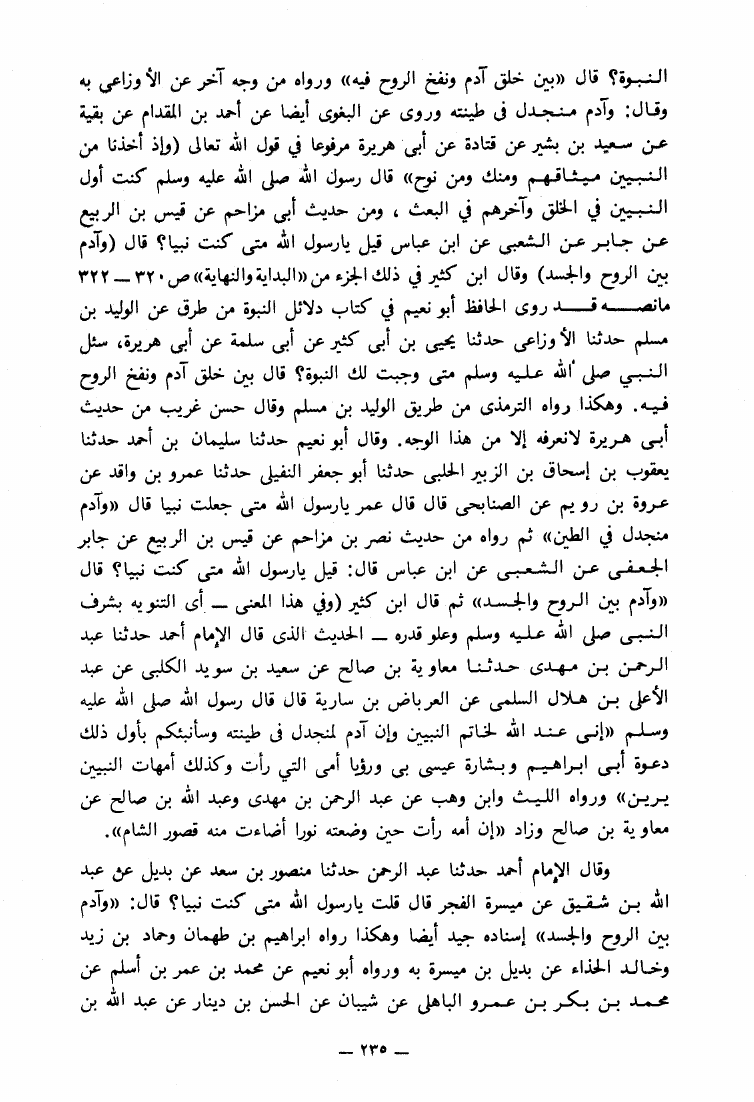 النبوة؟ قال «بين خلق آدم ونفخ الروح فيه» ورواه من وجه آخر عن الأوزاعي به
وقال: وآدم منجدل فى طينته وروى عن البغوى أيضا عن أحمد بن المقدام عن بقية
عن سعيد بن بشير عن قتادة عن أبى هريرة مرفوعا في قول الله تعالى (وإذ أخذنا من
النبيين ميثاقهم ومنك ومن نوح» قال رسول الله صلى الله عليه وسلم كنت أول
النبيين في الخلق وآخرهم في البعث ، ومن حديث أبى مزاحم عن قيس بن الربيع
عن جابر عن الشعبى عن ابن عباس قيل يارسول الله متى كنت نبيا؟ قال (وآدم
بين الروح والجسد) وقال ابن كثير في ذلك الجزء من «البداية والنهاية» ص ٣٢٠ — ٣٢٢
مانصه قد روى الحافظ أبو نعيم في كتاب دلائل النبوة من طرق عن الوليد بن
مسلم حدثنا الأوزاعى حدثنا يحيى بن أبى كثير عن أبى سلمة عن أبى هريرة، سئل
النبي صلى الله عليه وسلم متى وجبت لك النبوة؟ قال بين خلق آدم ونفخ الروح
فيه. وهكذا رواه الترمذى من طريق الوليد بن مسلم وقال حسن غريب من حديث
أبى هريرة لانعرفه إلا من هذا الوجه. وقال أبو نعيم حدثنا سليمان بن أحمد حدثنا
يعقوب بن إسحاق بن الزبير الحلبى حدثنا أبو جعفر النفيلى حدثنا عمرو بن واقد عن
عروة بن رويم عن الصنابحى قال قال عمر يارسول الله متى جعلت نبيا قال «وآدم
منجدل في الطين» ثم رواه من حديث نصر بن مزاحم عن قيس بن الربيع عن جابر
الجعفى عن الشعبى عن ابن عباس قال: قيل يارسول الله متى كنت نبيا؟ قال
«وآدم بين الروح والجسد» ثم قال ابن كثير (وفي هذا المعنى — أى التنويه بشرف
النبى صلى الله عليه وسلم وعلو قدره — الحديث الذى قال الإمام أحمد حدثنا عبد
الرحمن بن مهدى حدثنا معاوية بن صالح عن سعيد بن سويد الكلبى عن عبد
الأعلى بن هلال السلمى عن العرباض بن سارية قال قال رسول الله صلى الله عليه
وسلم «إنى عند الله لخاتم النبيين وإن آدم لمنجدل فى طينته وسأنبئكم بأول ذلك
دعوة أبى ابراهيم وبشارة عيسى بى ورؤيا أمى التي رأت وكذلك أمهات النبيين
يرين» ورواه الليث وابن وهب عن عبد الرحمن بن مهدى وعبد الله بن صالح عن
معاوية بن صالح وزاد «إن أمه رأت حين وضعته نورا أضاءت منه قصور الشام».
وقال الإمام أحمد حدثنا عبد الرحمن حدثنا منصور بن سعد عن بديل عن عبد
الله بن شقيق عن ميسرة الفجر قال قلت يارسول الله متى كنت نبيا؟ قال: «وآدم
بين الروح والجسد» إسناده جيد أيضا وهكذا رواه ابراهيم بن طهمان وحماد بن زيد
وخالد الحذاء عن بديل بن ميسرة به ورواه أبو نعيم عن محمد بن عمر بن أسلم عن
محمد بن بكر بن عمرو الباهلى عن شيبان عن الحسن بن دينار عن عبد الله بن
— ٢٣٥ —